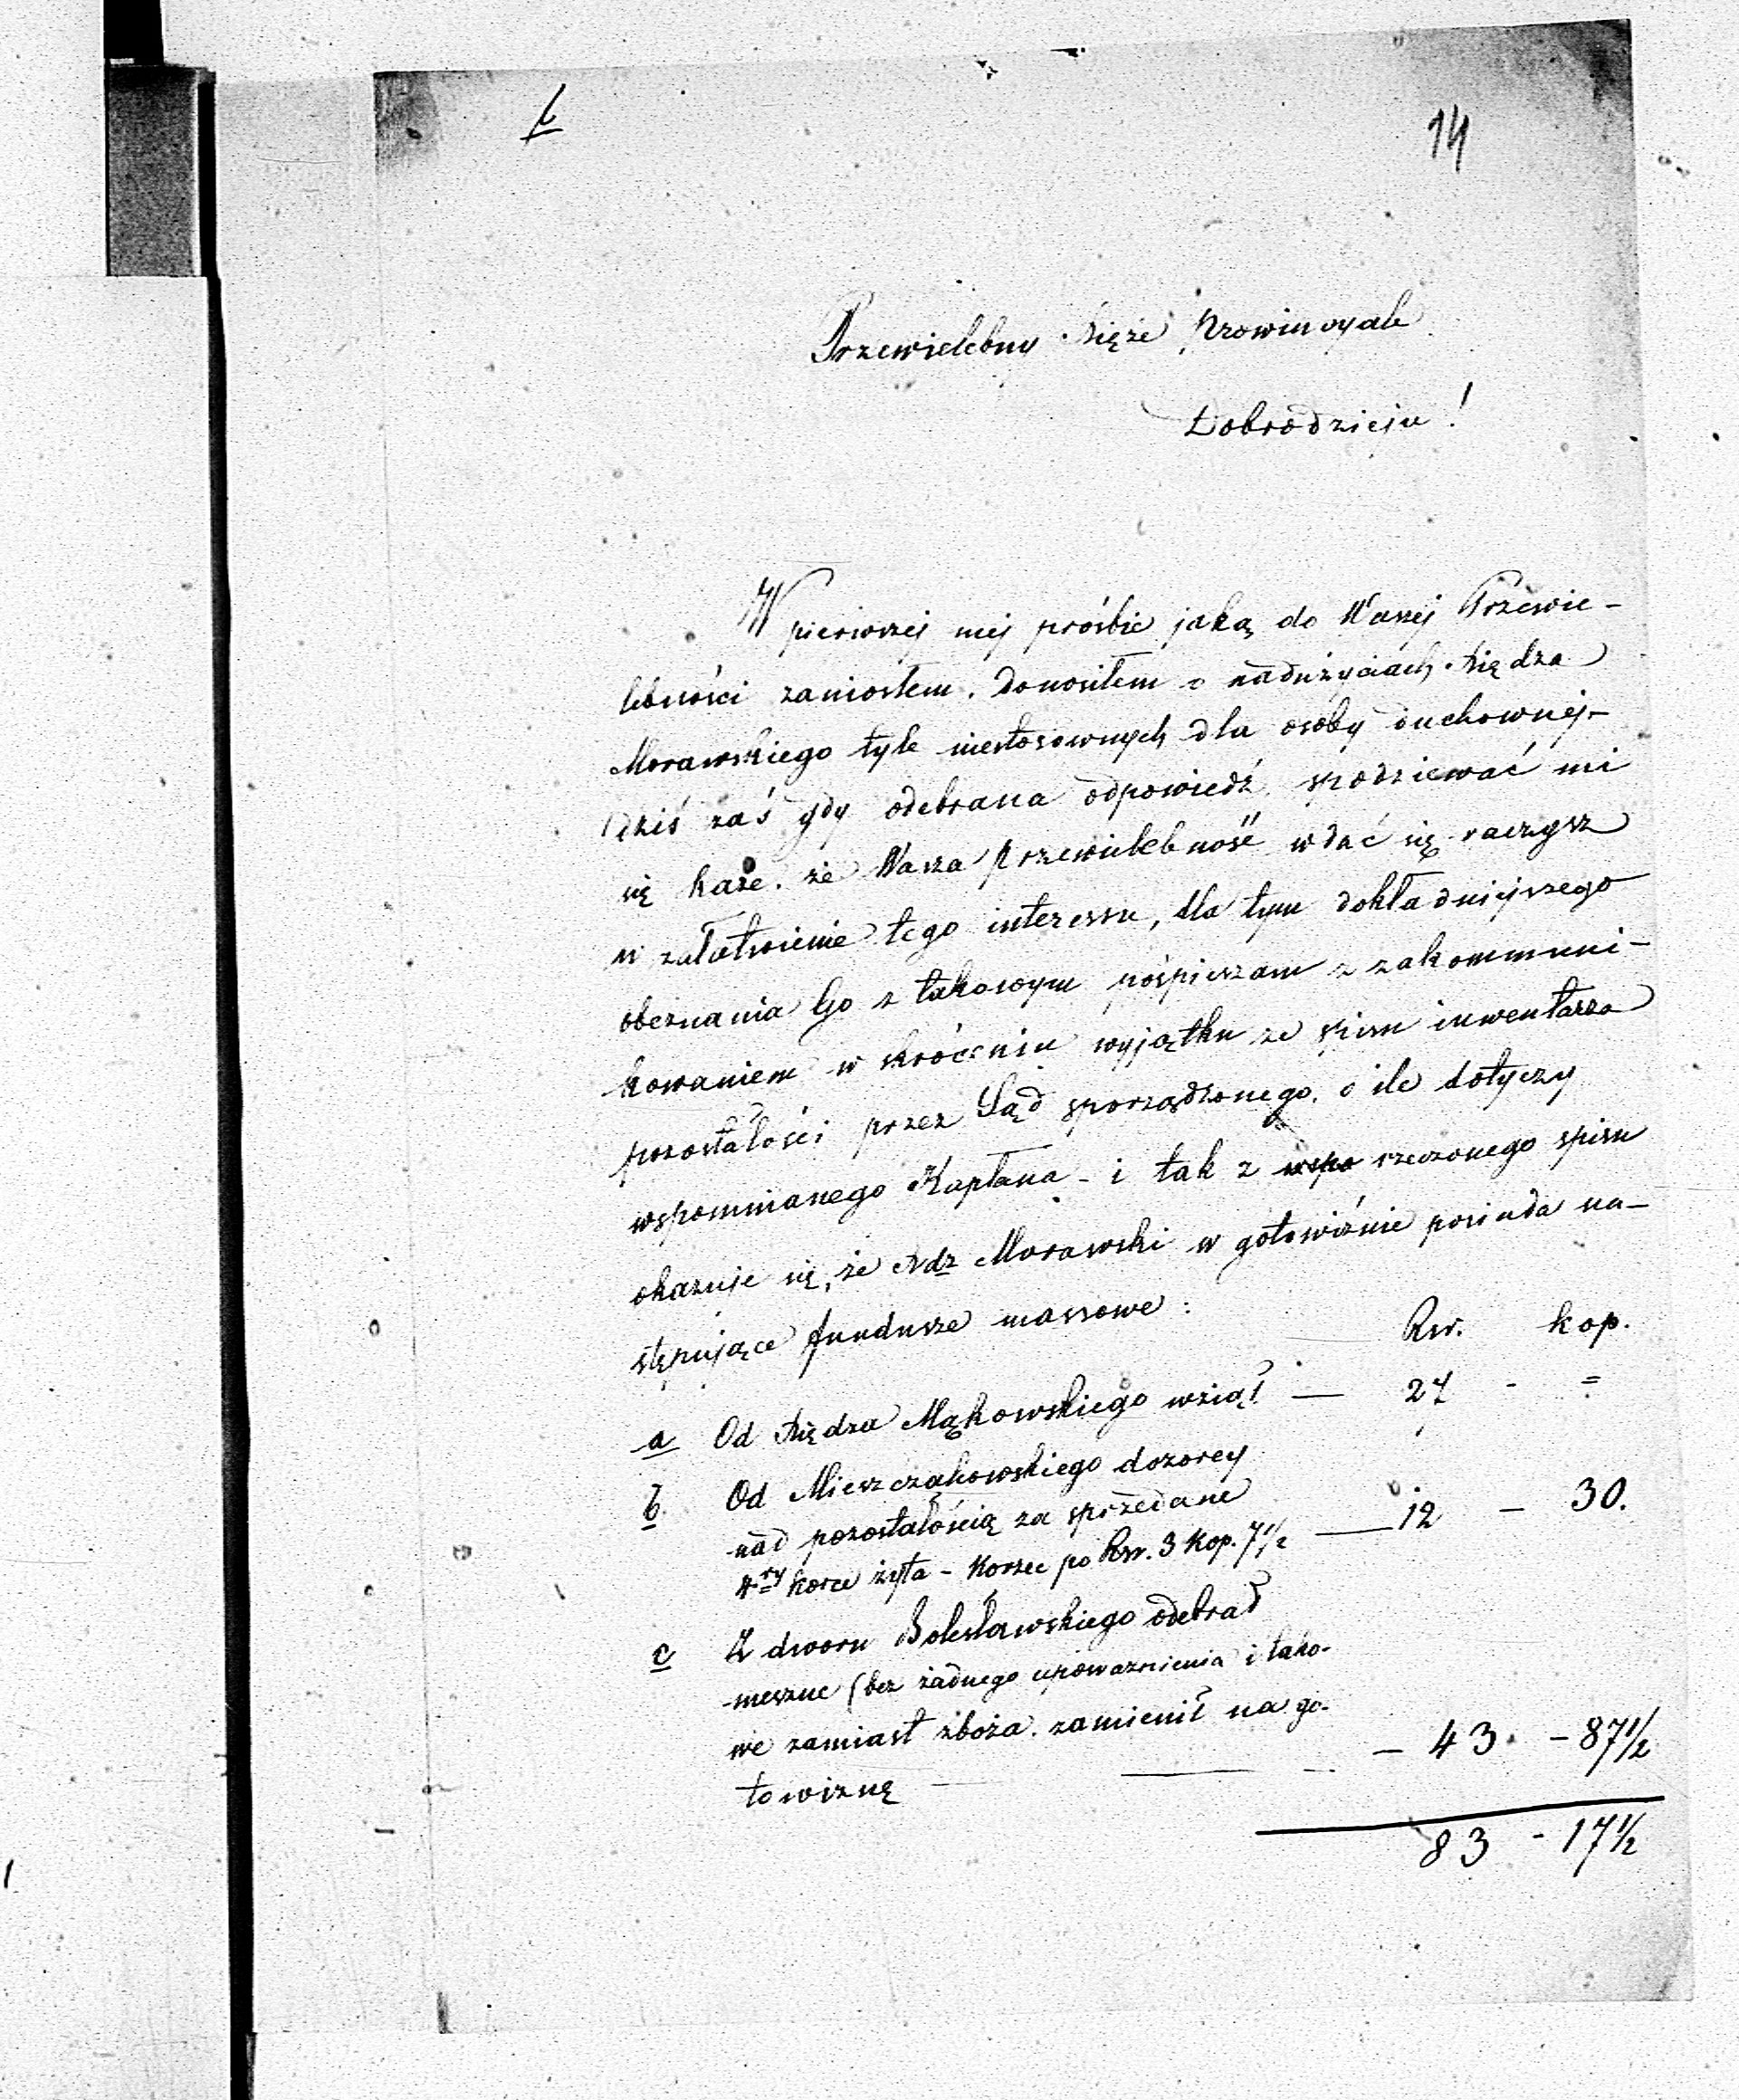 14
Przewielebny Xięże Prowincyale
Dobrodzieju!
W pierwszej mej prośbie jaką do Waszej Przewie-
lebności zaniosłem. Donosiłem o nadużyciach Xiędza
Morawskiego tyle niestosownych dla osoby duchownej-
Dziś zaś gdy odebrana odpowiedź, spodziewać mi
się każe. że Wasza Przewielebność wdać się raczysz
w załatwienie tego interessu, dla tym dokładniejszego
obeznania Go z takowym pośpieszam z zakommuni-
kowaniem w skróceniu wyjątku ze spisu inwentarza
pozostałości przez Sąd sporządzonego. o ile dotyczy
wspomnianego Kapłana - i tak z rzeczonego spisu
okazuje się, że Xdz Morawski w gotowiźnie posiada na-
stępujące fundusze massowe:
Rsr. kop.
a Od Xiędza Mąkowskiego wziął — 27 - =
b. Od Mieszczakowskiego dozorcy
nad pozostałością za sprzedane
4ry korce żyta - Korzec po Rsr. 3 Kop. 7½ — 12 - 30.
c Z dworu Bolesławskiego odebrał
meszne (bez żadnego upoważnienia i tako-
we zamiast zboża. zamienił na go-
towiznę — 43. - 87½
83 - 17½